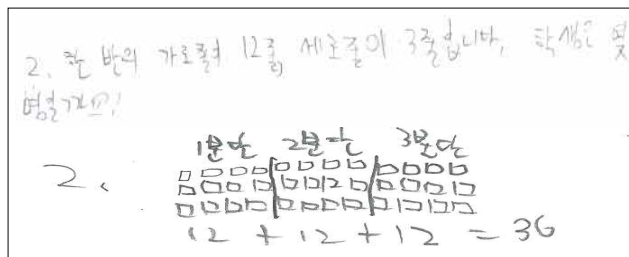 2. 한 반의 가로줄이 12줄, 세로줄이 3줄입니다. 학생은 몇
명일가요!
1분단 2분단 3분단
2.
12 + 12 + 12 = 36